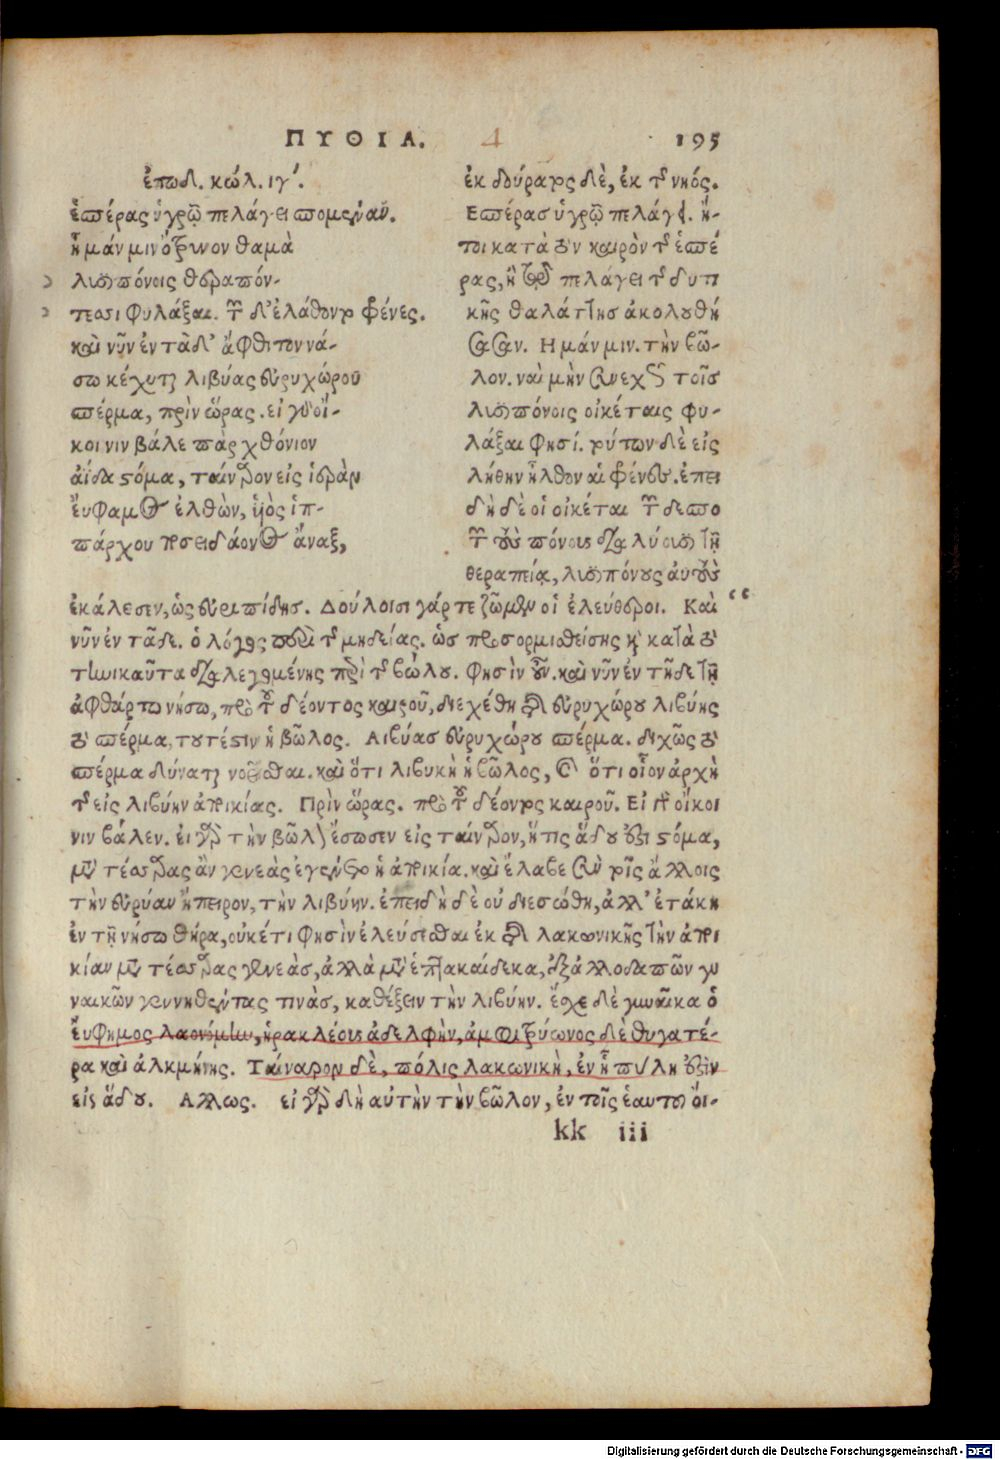 ΠΥΘΙΑ. 4 195
ἐπωδ. κώλ. ιγ΄.
ἑσπέρας ὑγρῷ πελάγει σπομέναν.
ἦ μάν μιν ὄτρυνον θαμὰ
λυσιπόνοις θεραπόν-
τεσσι φυλάξαι. τῶν δ' ἐλάθοντο φρένες.
καὶ νῦν ἐν τᾷδ' ἄφθιτον νά-
σῳ κέχυται λιβύας εὐρυχώρου
σπέρμα, πρὶν ὥρας. εἰ γὰρ οἴ-
κοι νιν βάλε πὰρ χθόνιον
ἀΐδα στόμα, ταίναρον εἰς ἱερὰν
εὔφαμος ἐλθὼν, υἱὸς ἱπ-
πάρχου ποσειδάονος ἄναξ,
ἐκ δούρατος δὲ, ἐκ τῆς νηός.
Εσπέρας ὑγρῷ πελάγει. ἤ-
τοι κατὰ τὸν καιρὸν τῆς ἑσπέ
ρας, ἢ τῷ πελάγει τῆς δυτι
κῆς θαλάττης ἀκολουθή
σασαν. Η μάν μιν. τὴν βῶ-
λον. ναὶ μὴν συνεχῶς τοῖς
λυσιπόνοις οἰκέταις φυ-
λάξαι φησί. τούτων δὲ εἰς
λήθην ἦλθον αἱ φρένες. ἐπει
δὴ δὲ οἱ οἰκέται τῶν δεσπο
τῶν τοὺς πόνους διαλύουσι τῇ
θεραπείᾳ, λυσιπόνους αὐτοὺς
ἐκάλεσεν, ὡς εὐριπίδης. Δούλοισι γάρ τε ζῶμεν οἱ ἐλεύθεροι. Καὶ “
νῦν ἐν τᾷδε. ὁ λόγος παρὰ τῆς μηδείας. ὡς προσορμισθείσης καὶ κατὰ τὸ
τὴνικαῦτα διαλεγομένης περὶ τῆς βώλου. Φησὶν οὖν. καὶ νῦν ἐν τῇδε τῇ
ἀφθάρτῳ νήσῳ, πρὸ τοῦ δέοντος καιροῦ, διεχέθη τῆς εὐρυχώρου λιβύης
τὸ σπέρμα, τουτέστιν ἡ βῶλος. Λιβύας εὐρυχώρου σπέρμα. διχῶς τὸ
σπέρμα δύναται νοεῖσθαι. καὶ ὅτι λιβυκὴ ἡ βῶλος, καὶ ὅτι οἷον ἀρχὴ
τῆς εἰς λιβύην ἀποικίας. Πρὶν ὥρας. πρὸ τοῦ δέοντος καιροῦ. Εἰ γὰρ οἴκοι
νιν βάλεν. εἰ γὰρ τὴν βῶλον ἔσωσεν εἰς ταίναρον, ἥτις ἅδου ἐστὶ στόμα,
μετὰ τέσσαρας ἂν γενεὰς ἐγένετο ἡ ἀποικία. καὶ ἔλαβε σὺν τοῖς ἄλλοις
τὴν εὐρύαν ἤπειρον, τὴν λιβύην. ἐπειδὴ δὲ οὐ διεσώθη, ἀλλ' ἐτάκη
ἐν τῇ νήσῳ θήρα, οὐκέτι φησὶν ἐλεύσεσθαι ἐκ τῆς λακωνικῆς τὴν ἀποι
κίαν μετὰ τέσσαρας γενεὰς, ἀλλὰ μετὰ ἑπτακαίδεκα, ἐξ ἀλλοδαπῶν γυ
ναικῶν γεννηθέντας τινὰς, καθέξειν τὴν λιβύην. ἔσχε δὲ γυναῖκα ὁ
εὔφημος λαονόμην, ἡρακλέους ἀδελφὴν, ἀμφιτρύωνος δὲ θυγατέ-
ρα καὶ ἀλκμήνης. Ταίναρον δὲ, πόλις λακωνικὴ, ἐν ᾗ πύλη ἐστὶν
εἰς ἅδου. Αλλως. εἰ γὰρ δὴ αὐτὴν τὴν βῶλον, ἐν τοῖς ἑαυτοῦ οἴ-
kk iii
Digitalisierung gefördert durch die Deutsche Forschungsgemeinschaft - DFG